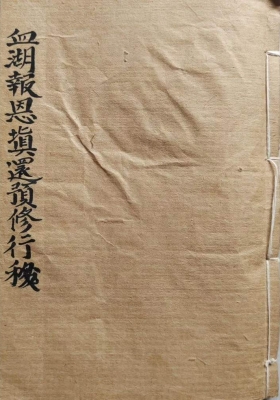 血湖報恩填還預修行秘